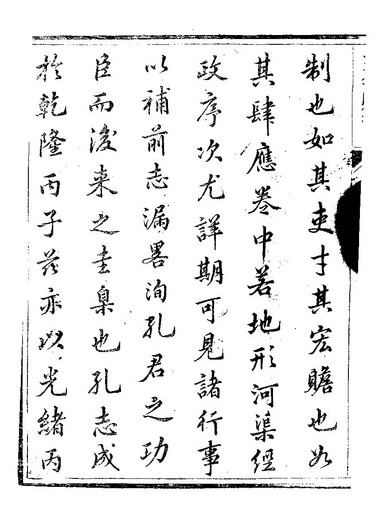 制也如其吏才其宏贍也如
其肆應卷中若地形河渠經
政序次尤詳期可見諸行事
以補前志漏畧洵孔君之功
臣而後来之圭臬也孔志成
於乾隆丙子茲亦以光緒丙